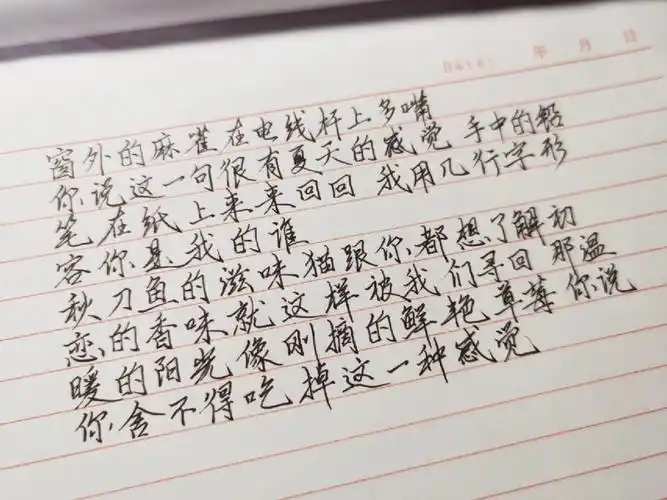 Date: 年 月 日
窗外的麻雀在电线杆上多嘴
你说这一句很有夏天的感觉 手中的铅
笔在纸上来来回回 我用几行字形
容你是我的谁
秋刀鱼的滋味猫跟你都想了解初
恋的香味就这样被我们寻回 那温
暖的阳光像刚摘的鲜艳草莓 你说
你舍不得吃掉这一种感觉